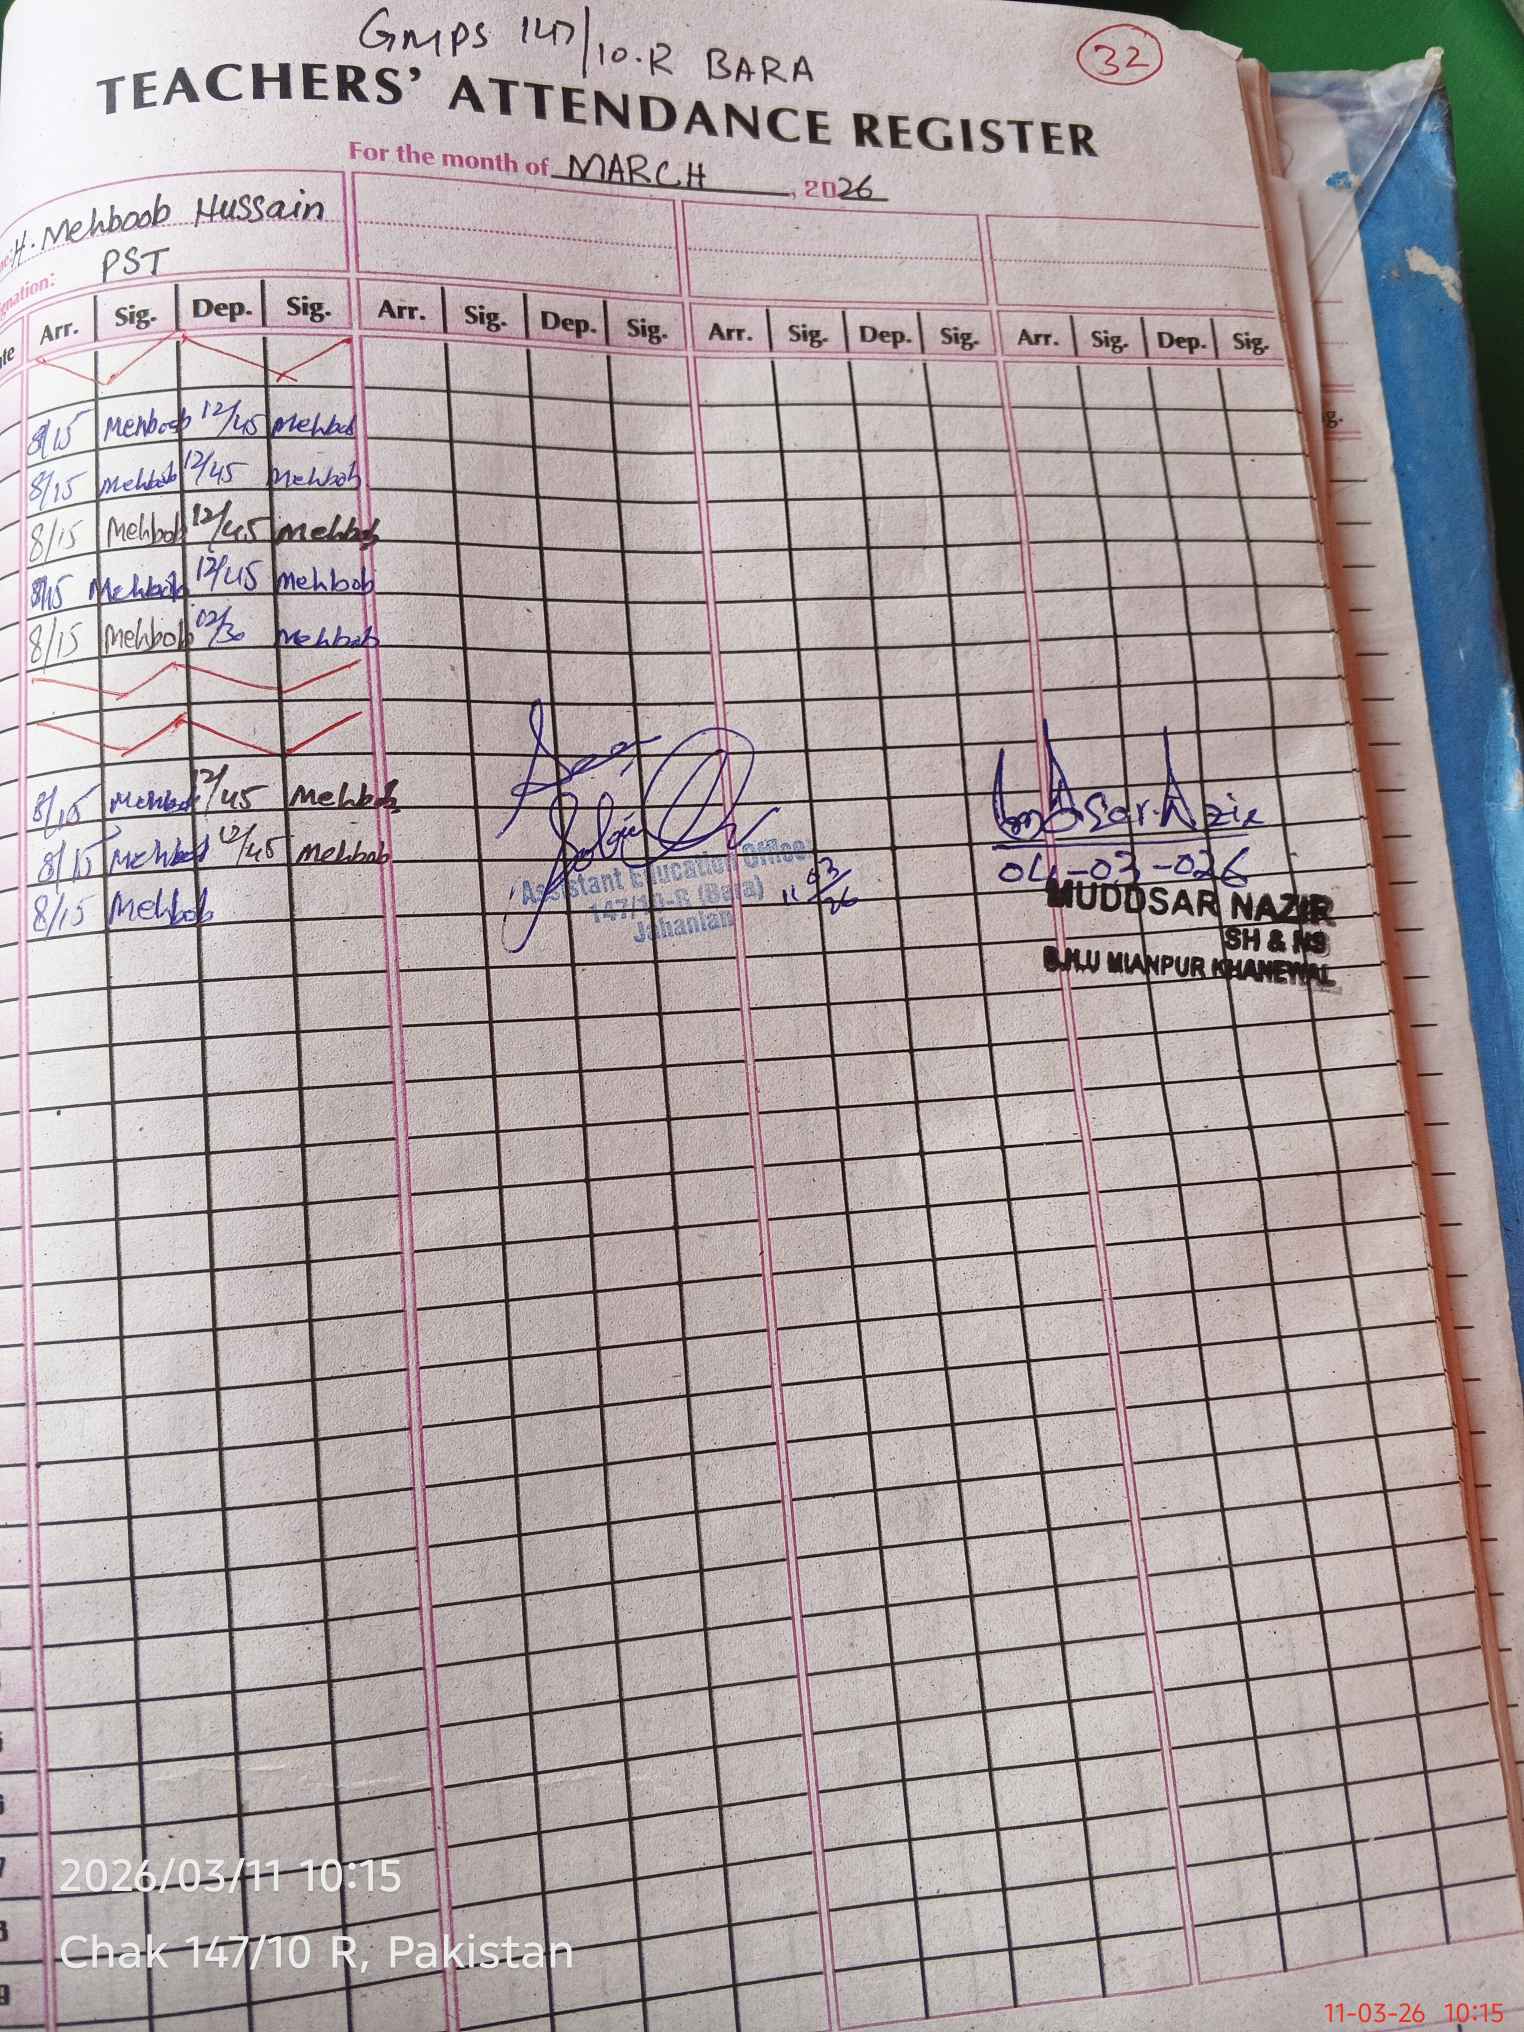 GMPS 147/10.R BARA
32
TEACHERS' ATTENDANCE REGISTER
For the month of MARCH, 2026
H. Mehboob Hussain
PST
Arr. Sig. Dep. Sig. Arr. Sig. Dep. Sig. Arr. Sig. Dep. Sig. Arr. Sig. Dep. Sig.
8/15 Mehboob 12/45 Mehbob
8/15 Mehbob 12/45 Mehbob
8/15 Mehbob 12/45 Mehbob
8/15 Mehbob 12/45 Mehbob
8/15 Mehbob 12/30 Mehbob
8/15 Mehbob 12/45 Mehbob
8/15 Mehbob 12/45 Mehbob
8/15 Mehbob
Assistant Education Officer
147/10-R (Bara)
Jahanian
11/03/26
Mudasar Nazir
04-03-026
MUDDSAR NAZIR
SH & NS
B.H.U MIANPUR KHANEWAL
2026/03/11 10:15
Chak 147/10 R, Pakistan
11-03-26 10:15